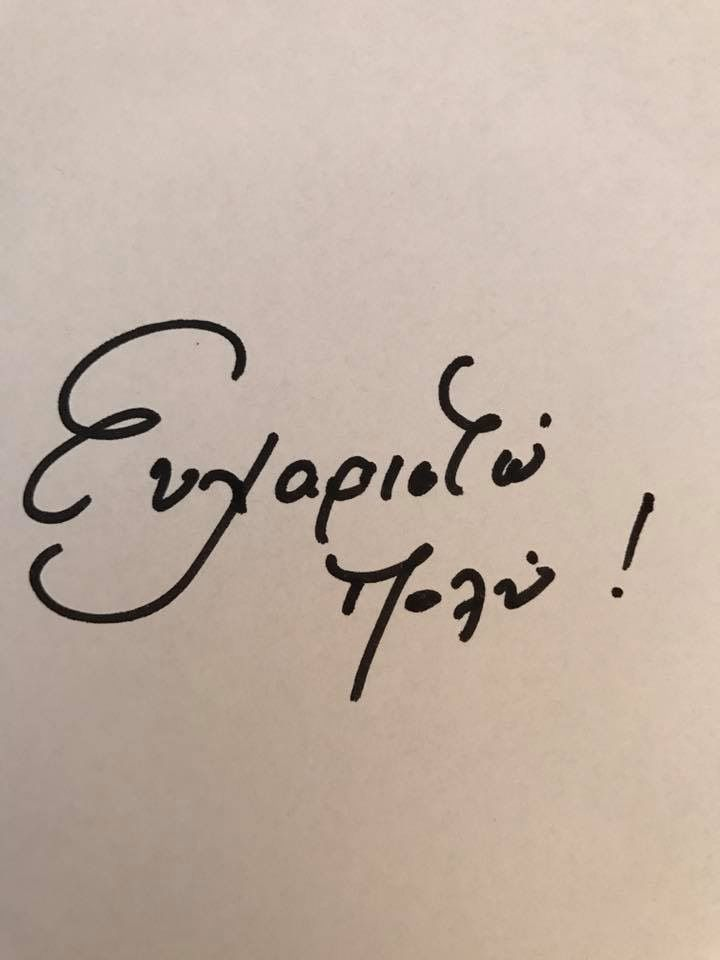 Ευχαριστώ
πολύ!